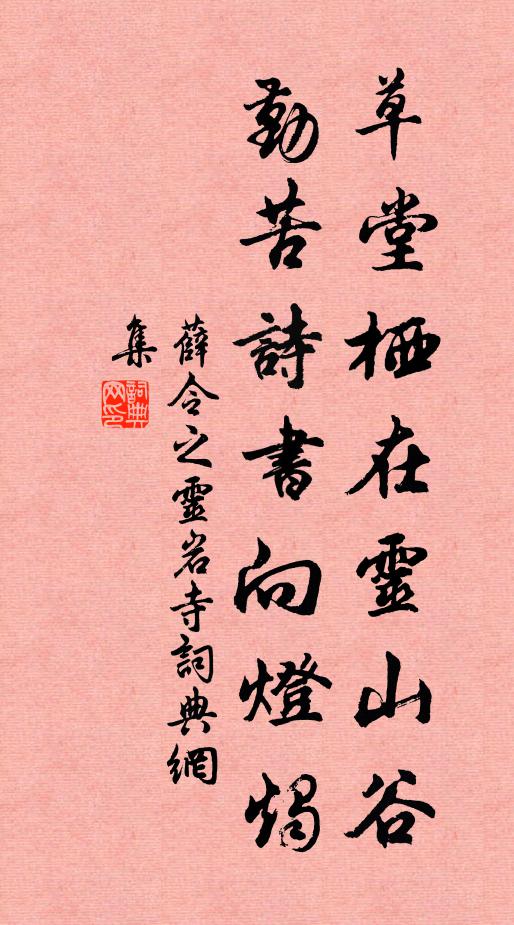 草堂栖在靈山谷
勤苦詩書向燈燭
薛令之靈岩寺詞典網
集
詞典
网印